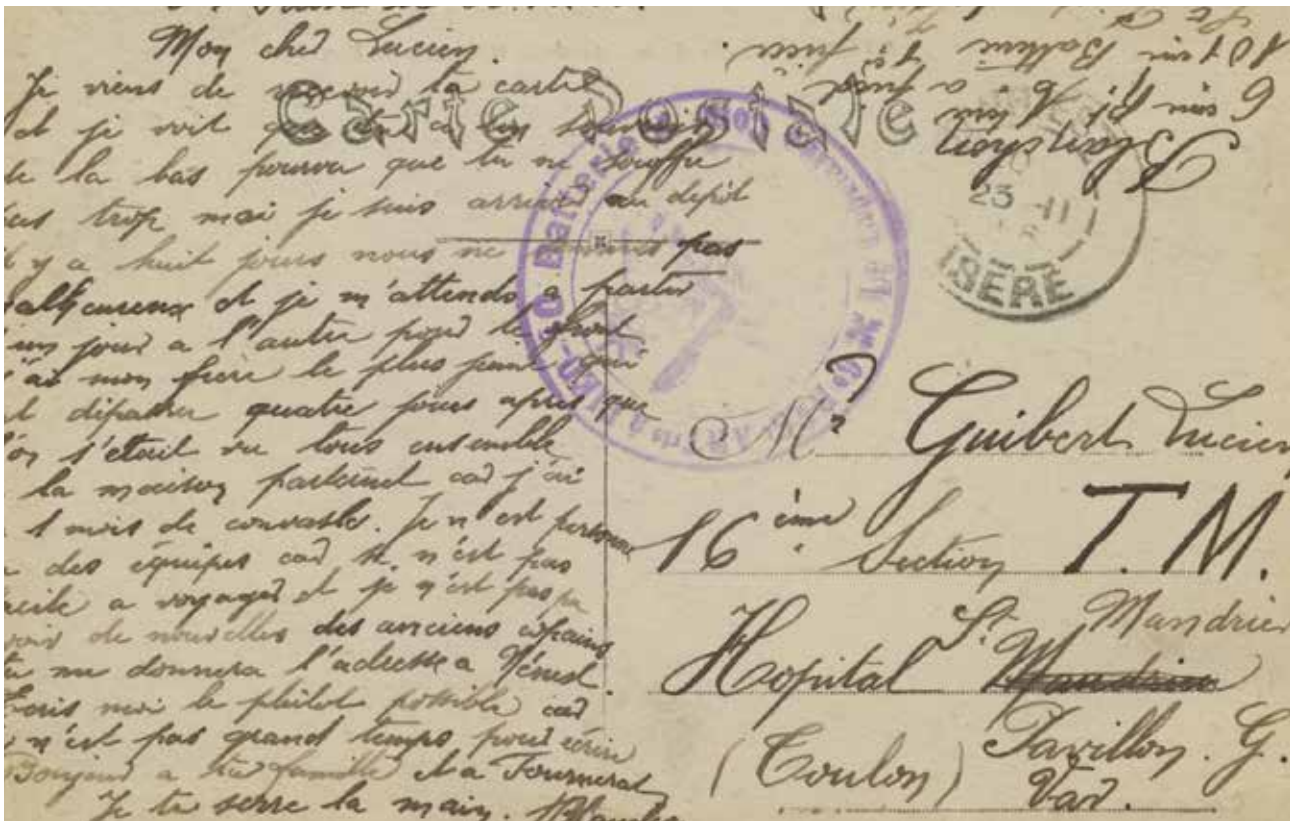 Mon cher Lucien.
Je viens de recevoir ta carte
et je voit que tu a un
de la bas pourvu que tu ne souffre
pas trop moi je suis arrivé au depôt
il y a huit jours nous ne sommes pas
malheureux et je m'attends a partir
d'un jour a l'autre pour le front
j'ai mon frère le plus jeune qui
quatre jours apres que
l'on s'etait vu tous ensemble
a la maison paternel car j'ai
1 mois de convalle. Je n'est personne
des équipes car se n'est pas
facile a voyager et je n'est pas pu
avoir de nouvelles des anciens copains
tu me donnera l'adresse a
Ecris moi le plutot possible car
je n'est pas grand temps pour ecrire
Bonjour a ta famille et a Fournerat
Je te serre la main. Blanchon
Carte Postale
Blanchon
6 ème Rt a pied
101 ème Batterie
23 - 11
ISERE
Batterie
Mr Guibert Lucien
16 ème Section T. M.
Hopital St Mandrier
Pavillon. G.
(Toulon) Var.